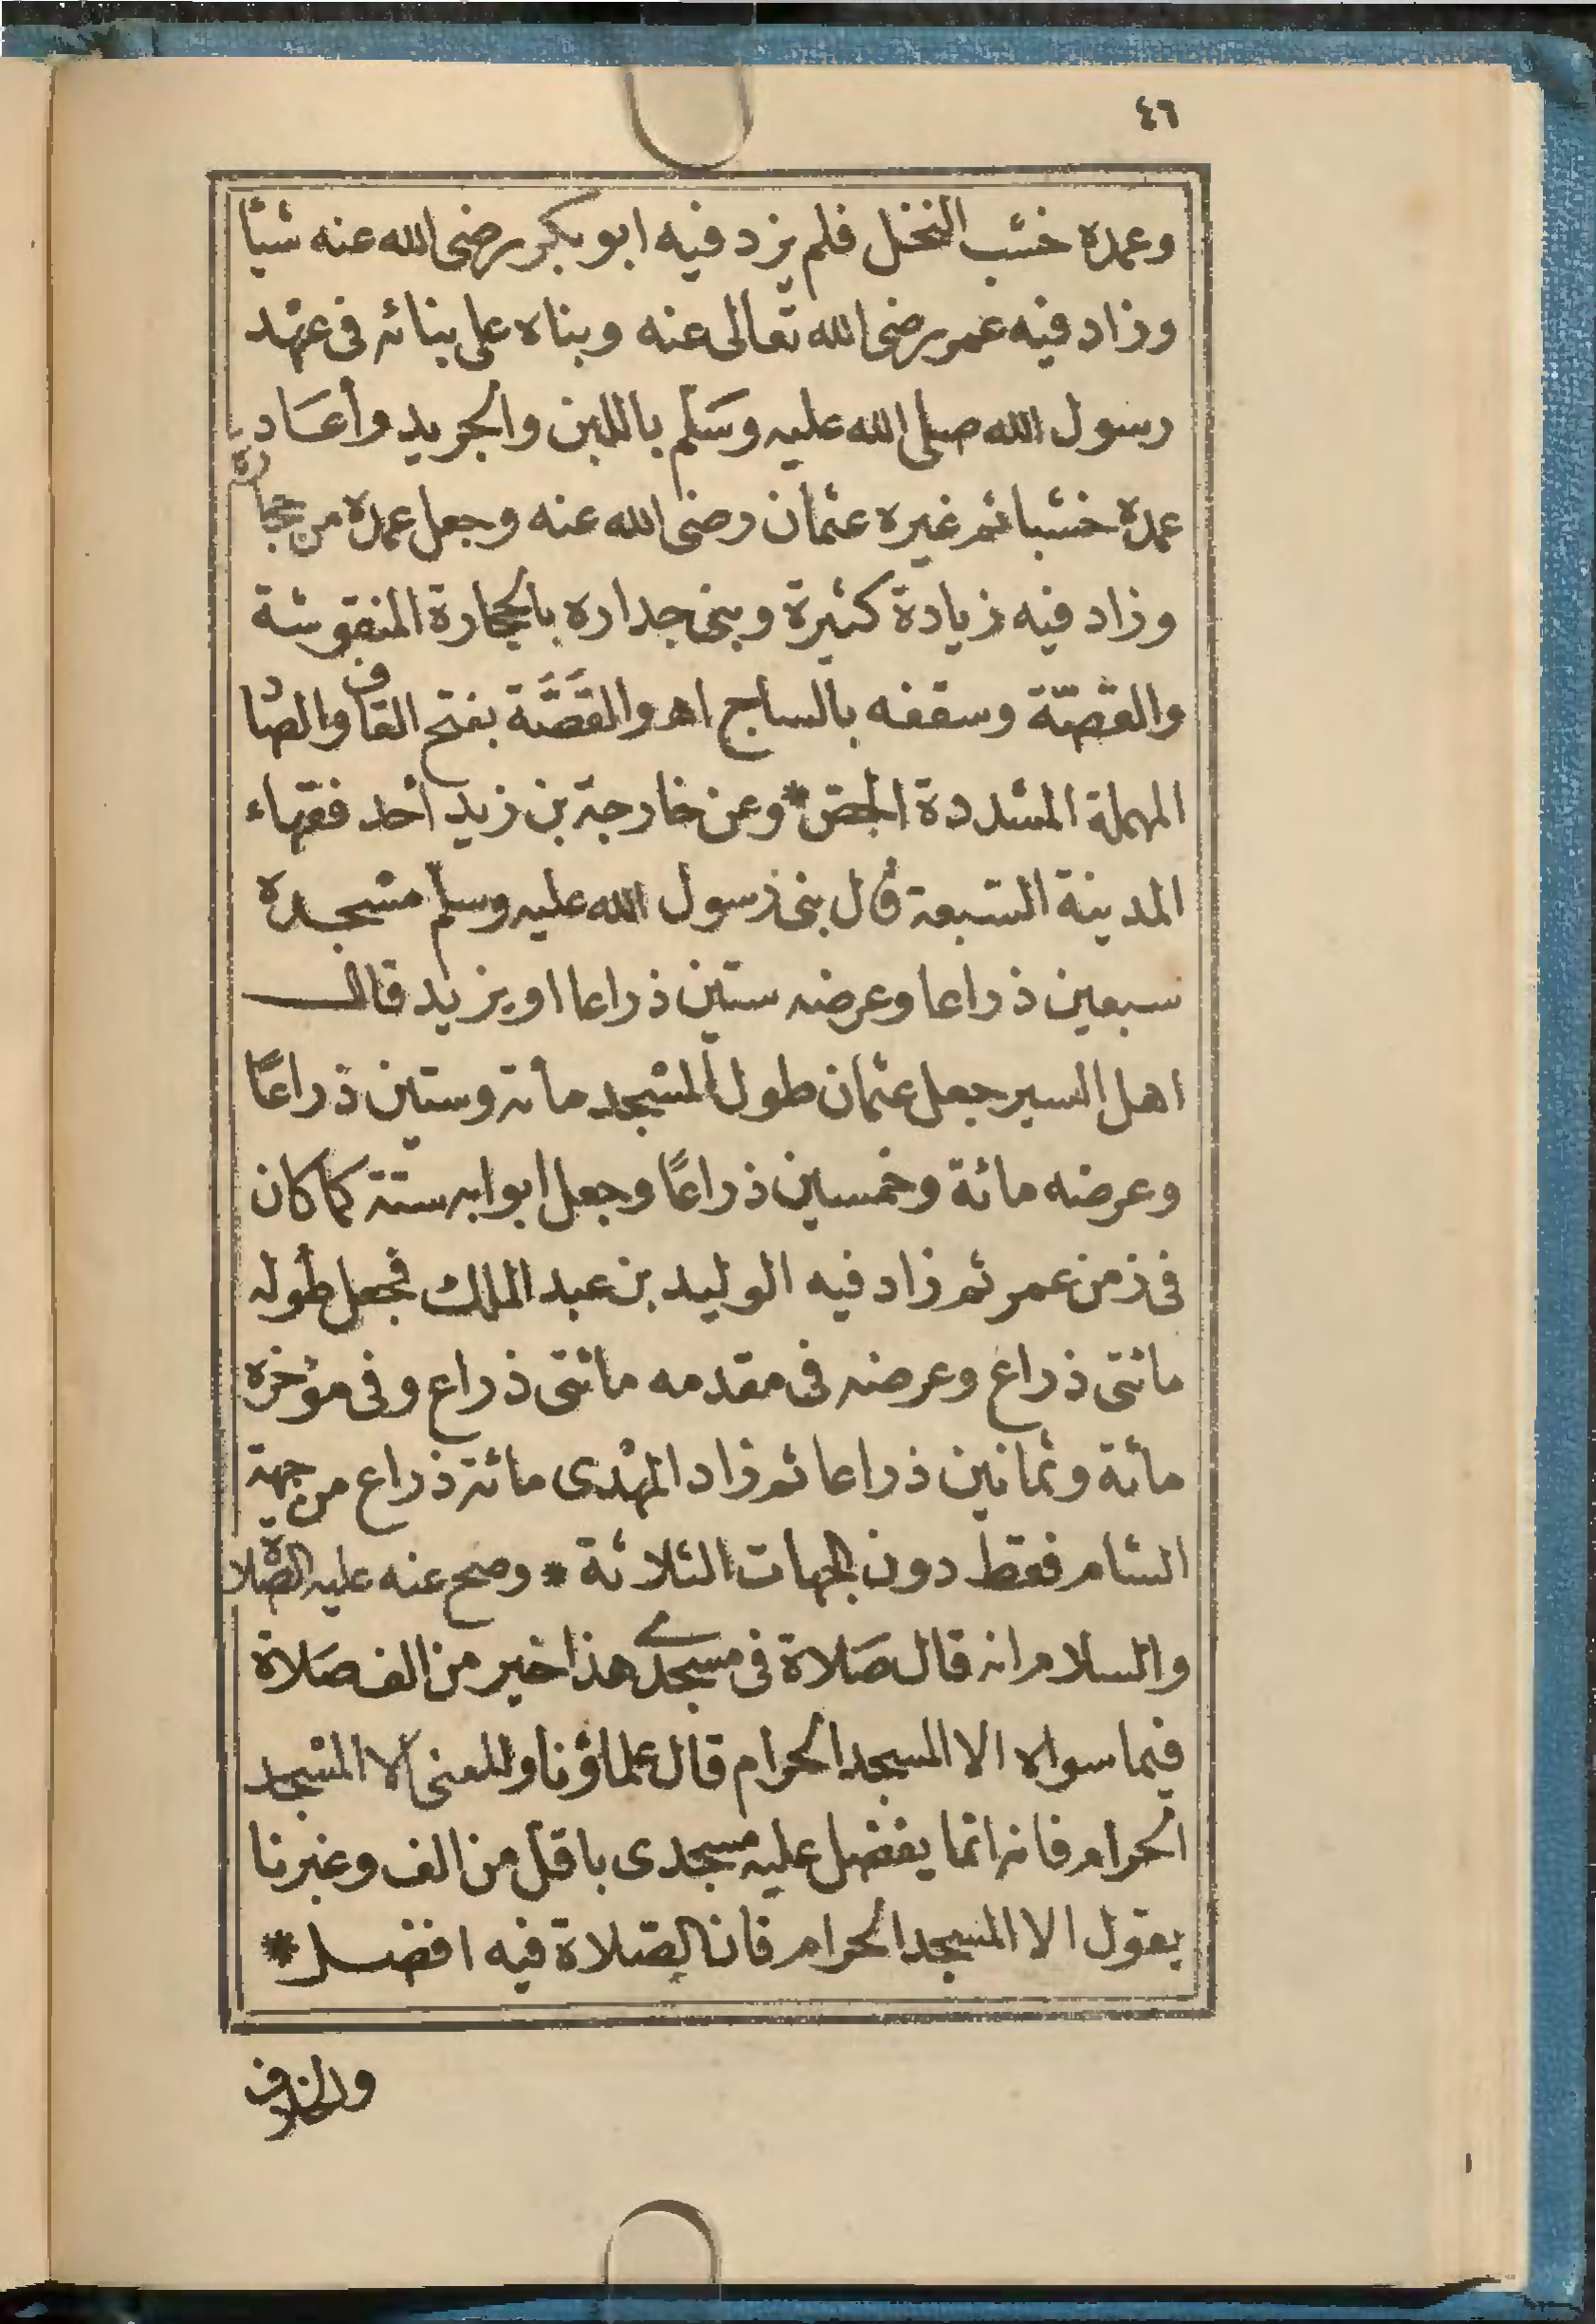 ٤٦
وعمده خشب النخل فلم يزد فيه ابو بكر رضى الله عنه شيأ
وزاد فيه عمر رضى الله تعالى عنه وبناه على بنائه فى عهد
رسول الله صلى الله عليه وسلم باللبن والجريد وأعاد
عمده خشبا ثم غيره عثمان رضى الله عنه وجعل عمده من حجارة
وزاد فيه زيادة كثيرة وبنى جداره بالحجارة المنقوشة
والقصّة وسقفه بالساج اهـ والقَصَّة بفتح القاف والصاد
المهملة المشددة الجص * وعن خارجة بن زيد أحد فقهاء
المدينة السبعة قال بنى رسول الله عليه وسلم مسجده
سبعين ذراعا وعرضه ستين ذراعا او يزيد قال
اهل السير جعل عثمان طول المسجد مأتة وستين ذراعًا
وعرضه مائة وخمسين ذراعًا وجعل ابوابه ستة كما كان
فى زمن عمر ثم زاد فيه الوليد بن عبد الملك فجعل طوله
مائتى ذراع وعرضه فى مقدمه مائتى ذراع وفى مؤخره
مائة وثمانين ذراعا ثم زاد المهدى مائة ذراع من جهة
الشام فقط دون الجهات الثلاثة * وصح عنه عليه الصّلاة
والسلام انه قال صَلاة فى مسجدى هذا خير من الف صَلاة
فيما سواه الا المسجد الحرام قال علماؤنا والمعنى الا المسجد
الحرام فانه انما يفضل عليه مسجدى باقل من الف وغيرنا
يقول الا المسجد الحرام فان الصّلاة فيه افضل *
والخلاف